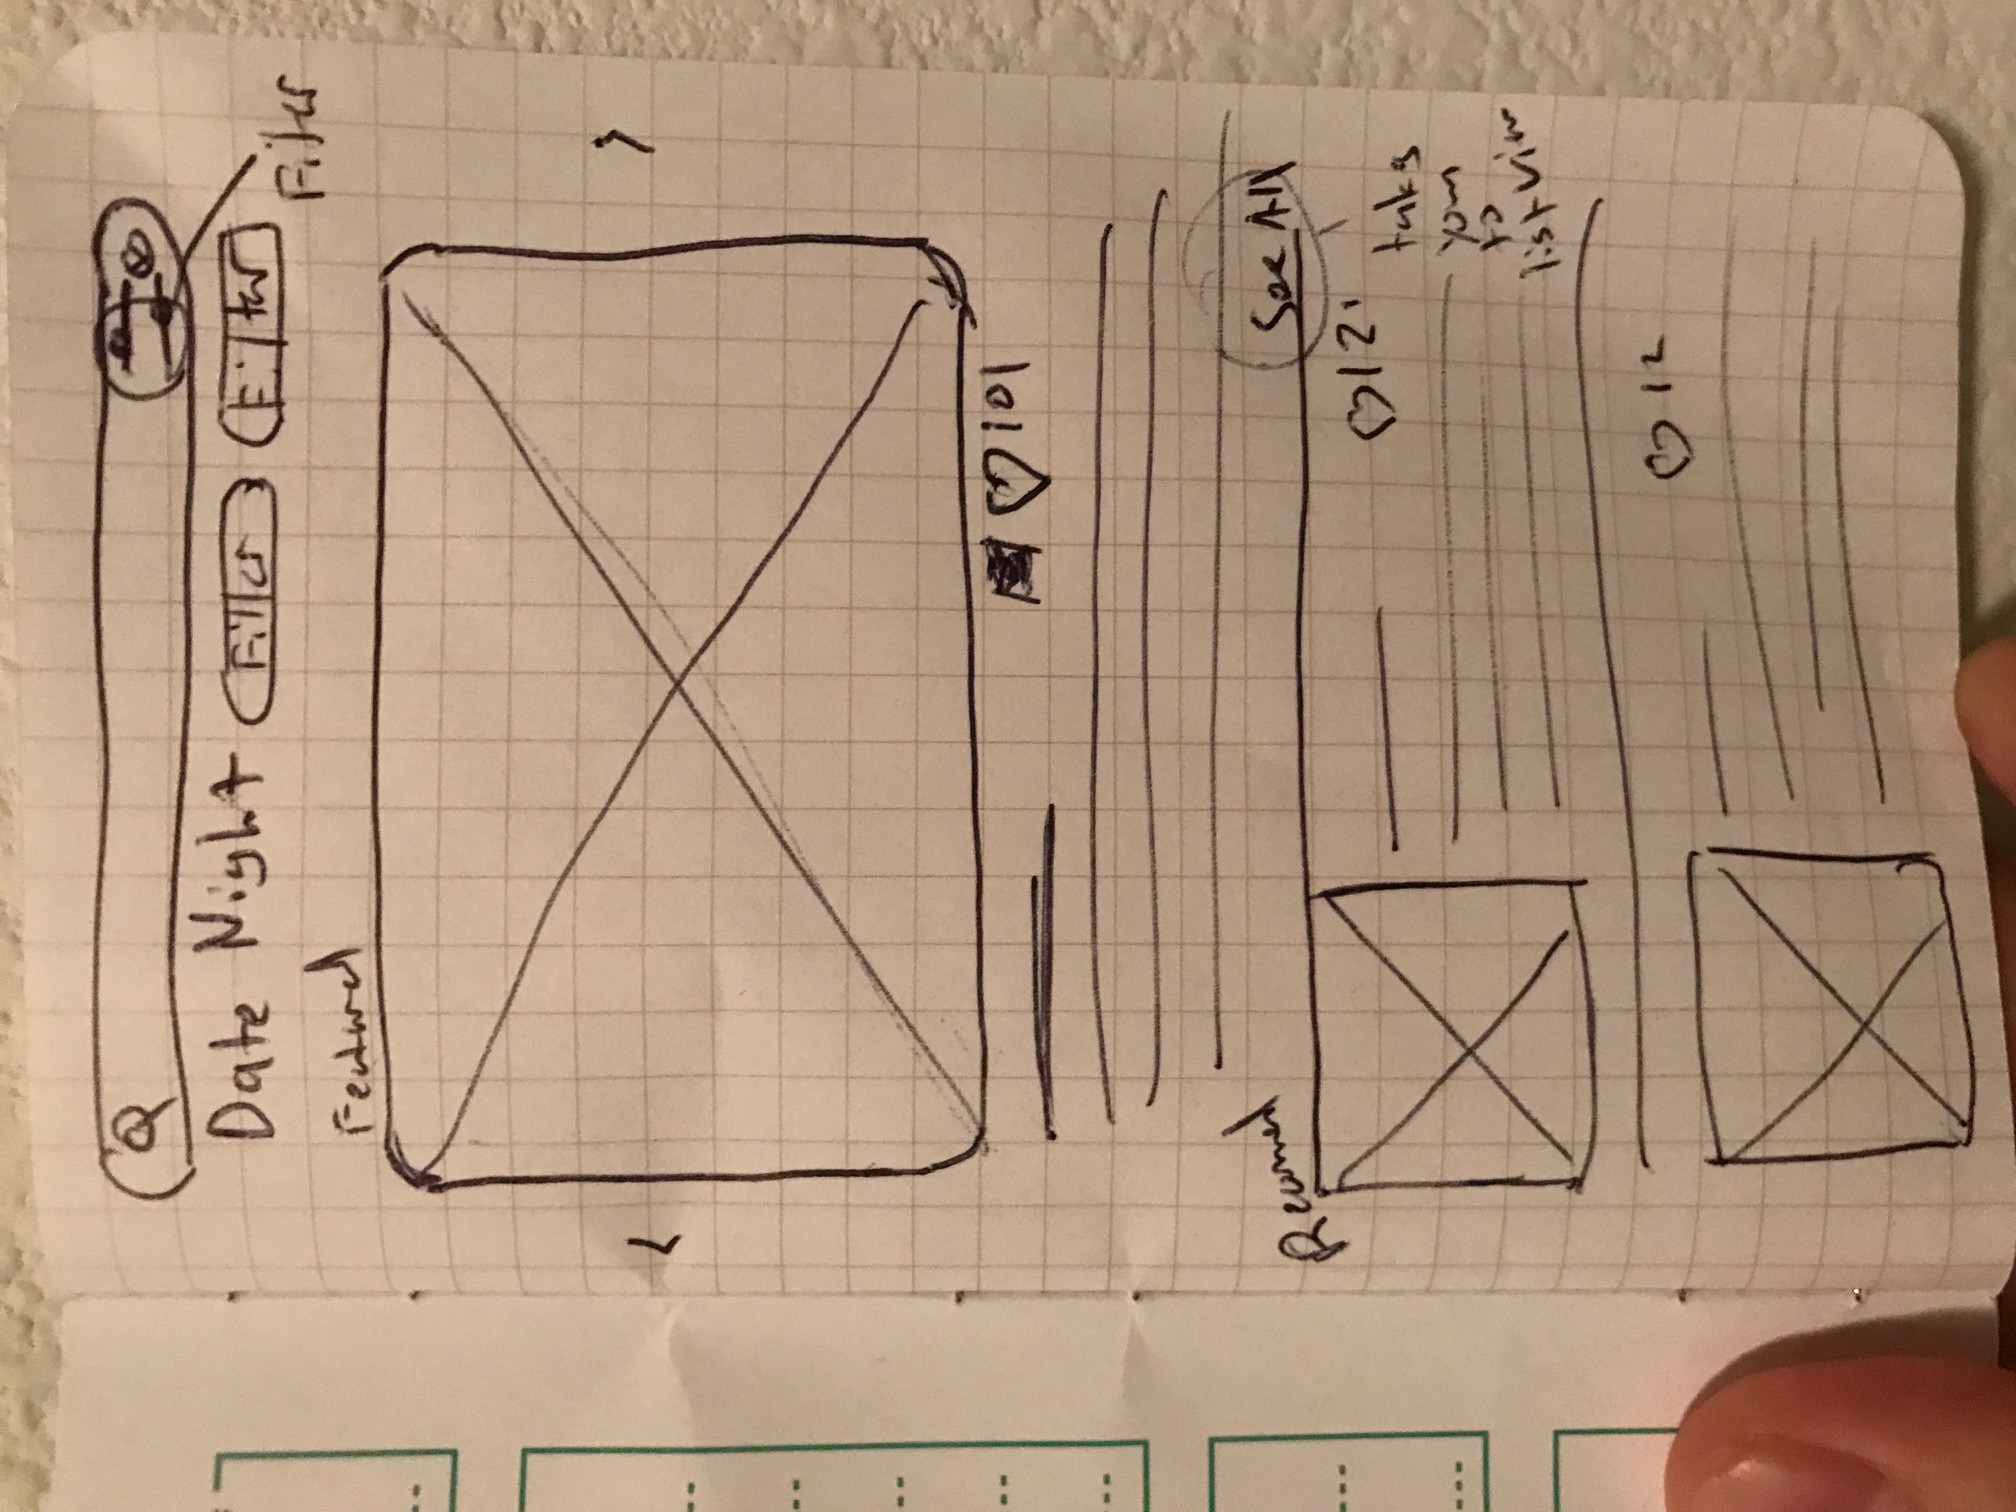 Date Night Filter Filter
Filter
Featured
101
Recomend
See All
12
takes
you
to
list view
12